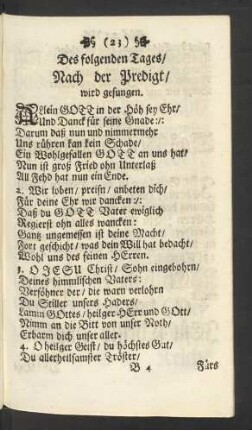 (23)
Des folgenden Tages/
Nach der Predigt/
wird gesungen.
Allein GOTT in der Höh sey Ehr/
Und Danck für seine Gnade:/:
Darum daß nun und nimmermehr
Uns rühren kan kein Schade/
Ein Wohlgefallen GOTT an uns hat/
Nun ist groß Fried ohn Unterlaß
All Fehd hat nun ein Ende.
2. Wir loben/ preisn/ anbeten dich/
Für deine Ehr wir dancken:/:
Daß du GOTT Vater ewiglich
Regierst ohn alles wancken:
Gantz ungemessen ist deine Macht/
Fort geschicht/ was dein Will hat bedacht/
Wohl uns des feinen HErren.
3. O JESU Christ/ Sohn eingebohrn/
Deines himmlischen Vaters:
Versöhner der/ die warn verlohrn
Du Stiller unsers Haders/
Lamm GOttes/ heilger HErr und GOtt/
Nimm an die Bitt von unser Noth/
Erbarm dich unser aller.
4. O heilger Geist/ du höchstes Gut/
Du allerheilsamster Tröster/
B 4
Fürs